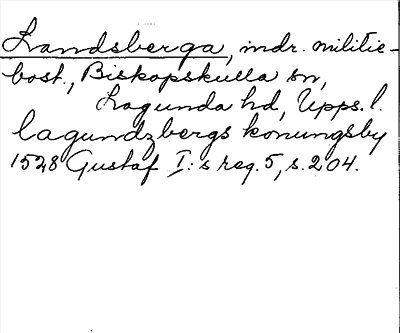 Landsberga, indr. militie-
bost., Biskopskulla sn,
Lagunda hd, Upps. l.
lagundzbergs konungsby
1528 Gustaf I:s reg. 5, s. 204.